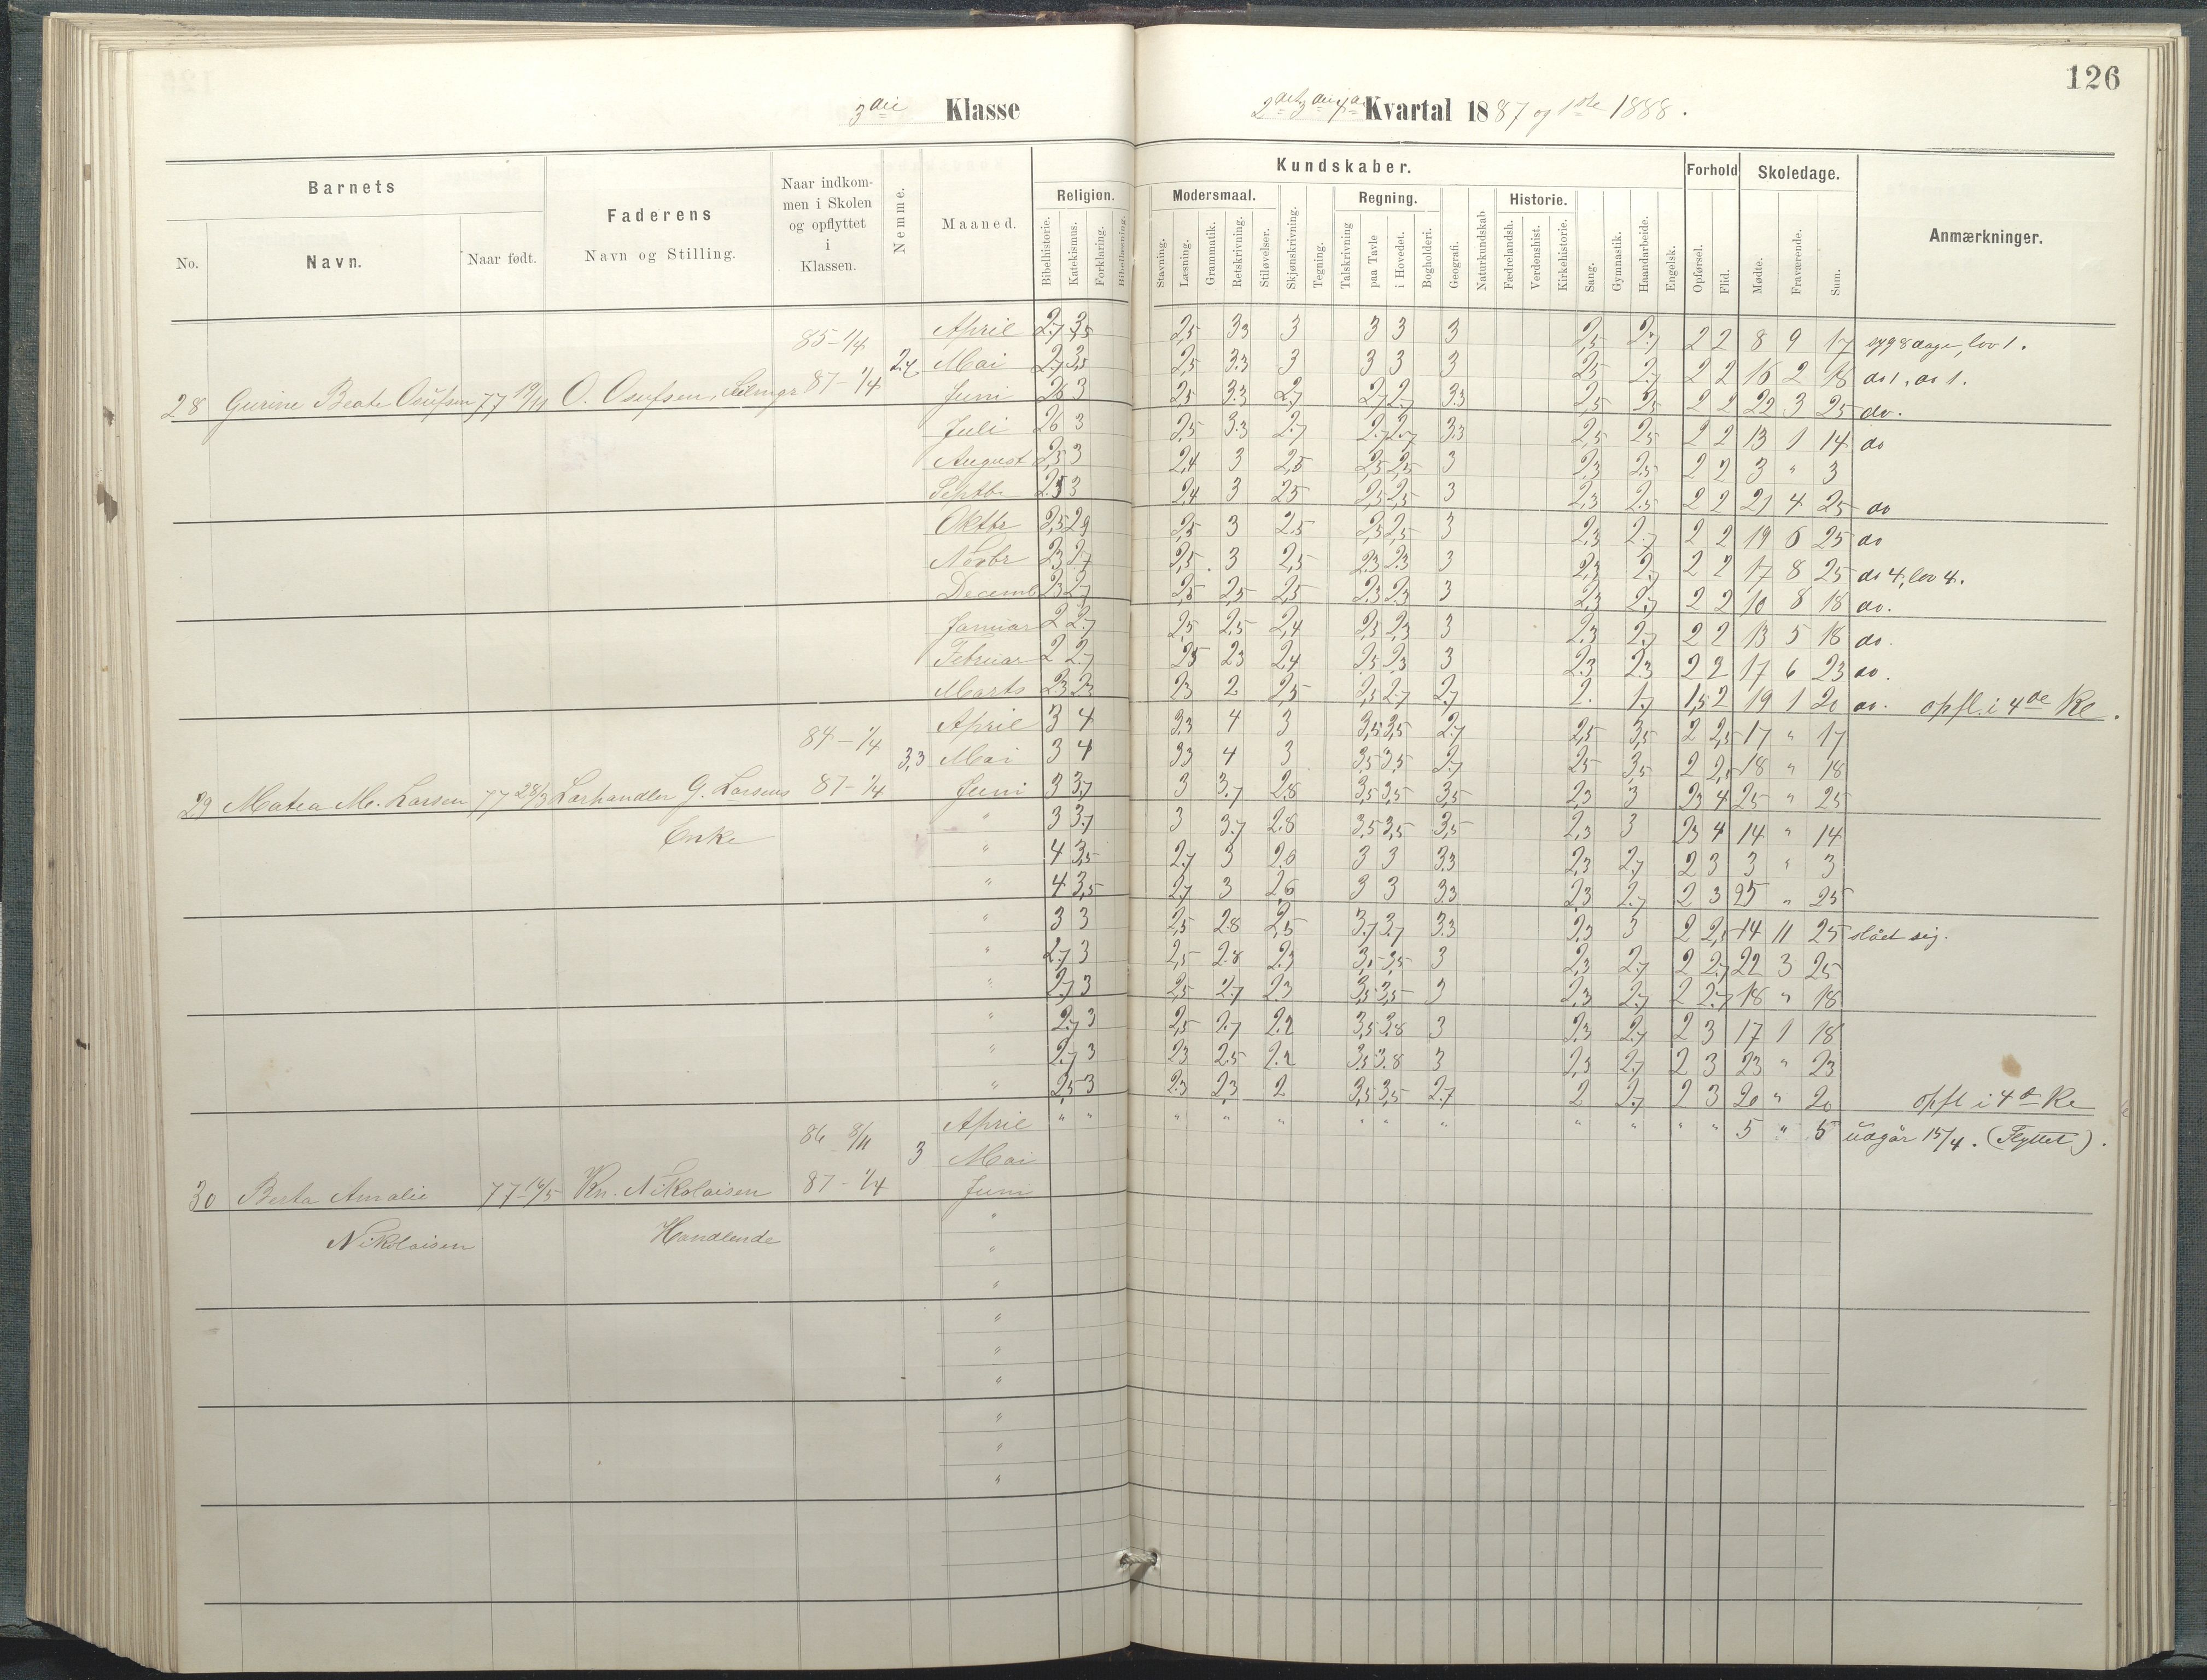 126
3die Klasse
2det 3die 4de Kvartal 1887 og 1ste 1888.
Barnets
Faderens
Naar indkommen i Skolen og opflyttet i Klassen.
Nemme.
Maaned.
Kundskaber.
Forhold
Skoledage.
Anmærkninger.
No.
Navn.
Naar født.
Navn og Stilling.
Religion.
Modersmaal.
Regning.
Historie.
Bibelhistorie. Katekismus. Forklaring. Bibellæsning.
Stavning. Læsning. Grammatik. Retskrivning. Stiløvelser. Skjønskrivning. Tegning. Talskrivning paa Tavle i Hovedet. Bogholderi. Geografi. Naturkundskab Fædrelandsh. Verdenshist. Kirkehistorie. Sang. Gymnastik. Haandarbeide. Engelsk. Opførsel. Flid. Mødte. Fraværende. Sum.
April 2,7 3,5 2,5 3,3 3 3 3 3 2,5 2,7 2 2 8 9 17 syg 8 dage, lov 1.
85-1/4
Mai 2,7 3,5 2,5 3.3 3 3 3 3 2,5 2,7 2 2 16 2 18 do 1, do 1.
28 Gurine Beate Osufsen 77 19/11 O. Osufsen, 87-1/4 Juni 2,6 3 2,5 3.3 2,7 2,7 2,7 3.3 2,5 2,5 2 2 22 3 25 do.
Juli 2,6 3 2,5 3.3 2.7 2.7 2.7 3.3 2,5 2,5 2 2 13 1 14 do
August 2,5 3 2,4 3 2,5 2,5 2,5 3 2,3 2,5 2 2 3 " 3
Septbr 2.5 3 2,4 3 2,5 2,5 2,5 3 2,3 2.5 2 2 21 4 25 do
Oktbr 2,5 2,9 2,5 3 2.5 2,3 2,5 3 2,3 2.7 2 2 19 6 25 do
Novbr 2,3 2,7 2,5 3 2,5 2.3 2.3 3 2,3 2,7 2 2 17 8 25 do 4, lov 4.
Decemb 2,3 2,7 2,5 2,5 2,5 2.3 2.3 3 2,3 2,7 2 2 10 8 18 do.
Januar 2 2.7 2,5 2,5 2,4 2,3 2,3 3 2,3 2,7 2 2 13 5 18 do.
Februar 2 2.7 2,5 2,3 2,4 2,5 2,3 3 2.3 2.3 2 2 17 6 23 do.
Marts 2,3 2,3 2,3 2 2,5 2,5 2,7 2,7 2. 1,7 1,5 2 19 1 20 do. opfl. i 4de Kl.
April 3 4 3,3 4 3 3,5 3,5 2,7 2,5 3,5 2 2,5 17 " 17
84-1/4
3,3 Mai 3 4 3,3 4 3 3,5 3,5 2,7 2,5 3,5 2 2,5 18 " 18
29 Matea M. Larsen 77 28/3 Lærhandler G. Larsens 87-1/4 Juni 3 3,7 3 3.7 2,8 3,5 3,5 3,5 2,3 3 2,3 4 25 " 25
Enke " 3 3.7 3 3.7 2.8 3,5 3,5 3,5 2,3 3 2,3 4 14 " 14
" 4 3,5 2,7 3 2,6 3 3 3,3 2,3 2,7 2 3 3 " 3
" 4 3,5 2,7 3 2,6 3 3 3.3 2,3 2.7 2 3 25 " 25
" 3 3 2,5 2.8 2,5 3.7 3.7 3.3 2,3 3 2 2,5 14 11 25 slået sig.
" 2.7 3 2,5 2.8 2.3 3,5 3,5 3 2,3 2,7 2 2,7 22 3 25
" 2,7 3 2,5 2.7 2.3 3,5 3,5 3 2,3 2,7 2 2.7 18 " 18
" 2.7 3 2,5 2.7 2.2 3,5 3.8 3 2,3 2.7 2 3 17 1 18
" 2.7 3 2,3 2.5 2.2 3,5 3.8 3 2,3 2,7 2 3 23 " 23
" 2,5 3 2.3 2,3 2 3,5 3,5 2.7 2 2,7 2 3 20 " 20 opfl i 4de Kl
April " " " " " " " " " " " " 5 " 5 udgår 15/4. (Flyttet).
86 8/11
3 Mai
30 Berta Amalie 77-16/5 Kn. Nikolaisen 87-1/4 Juni
"
Nikolaisen Handlende
"
"
"
"
"
"
"
"